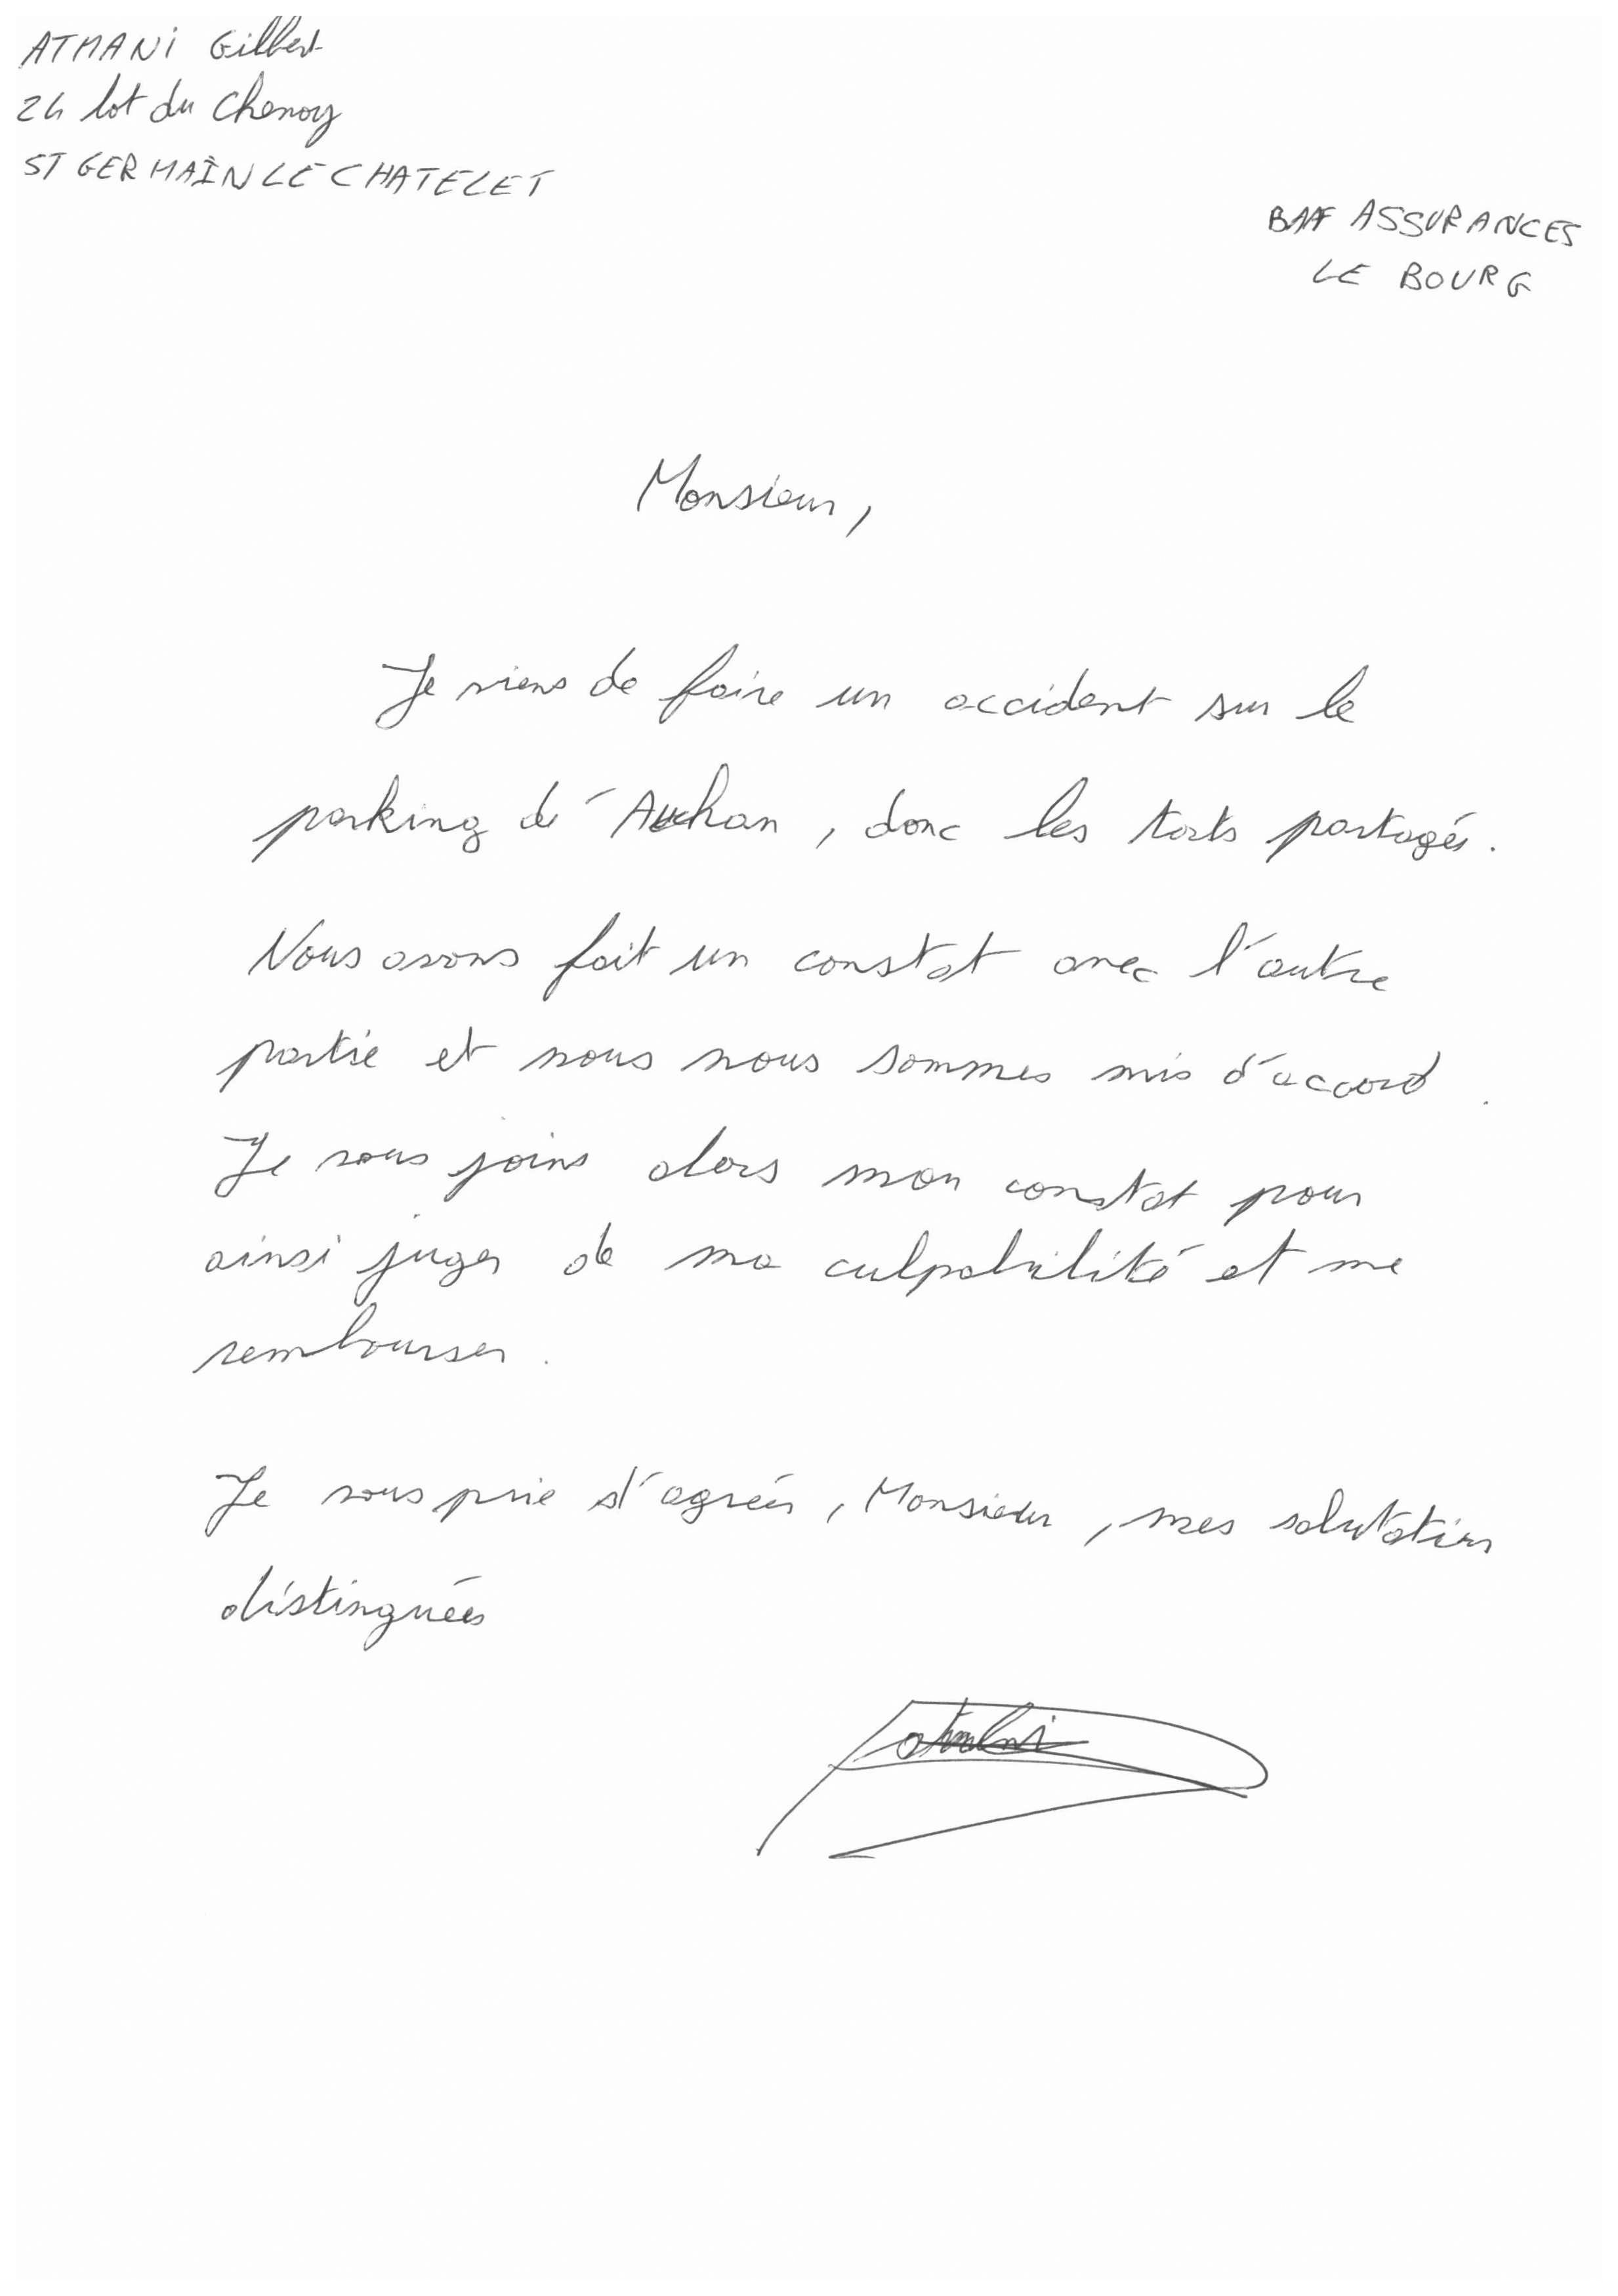 ATMANI Gilbert
24 lot du Chenoy
ST GERMAIN LE CHATELET
BAAF ASSURANCES
LE BOURG
Monsieur,
Je viens de faire un accident sur le
parking d'Auchan, donc les torts partagés.
Nous avons fait un constat avec l'autre
partie et nous nous sommes mis d'accord.
Je vous joins alors mon constat pour
ainsi juger de ma culpabilité et me
rembourser.
Je vous prie d'agréer, Monsieur, mes salutations
distinguées